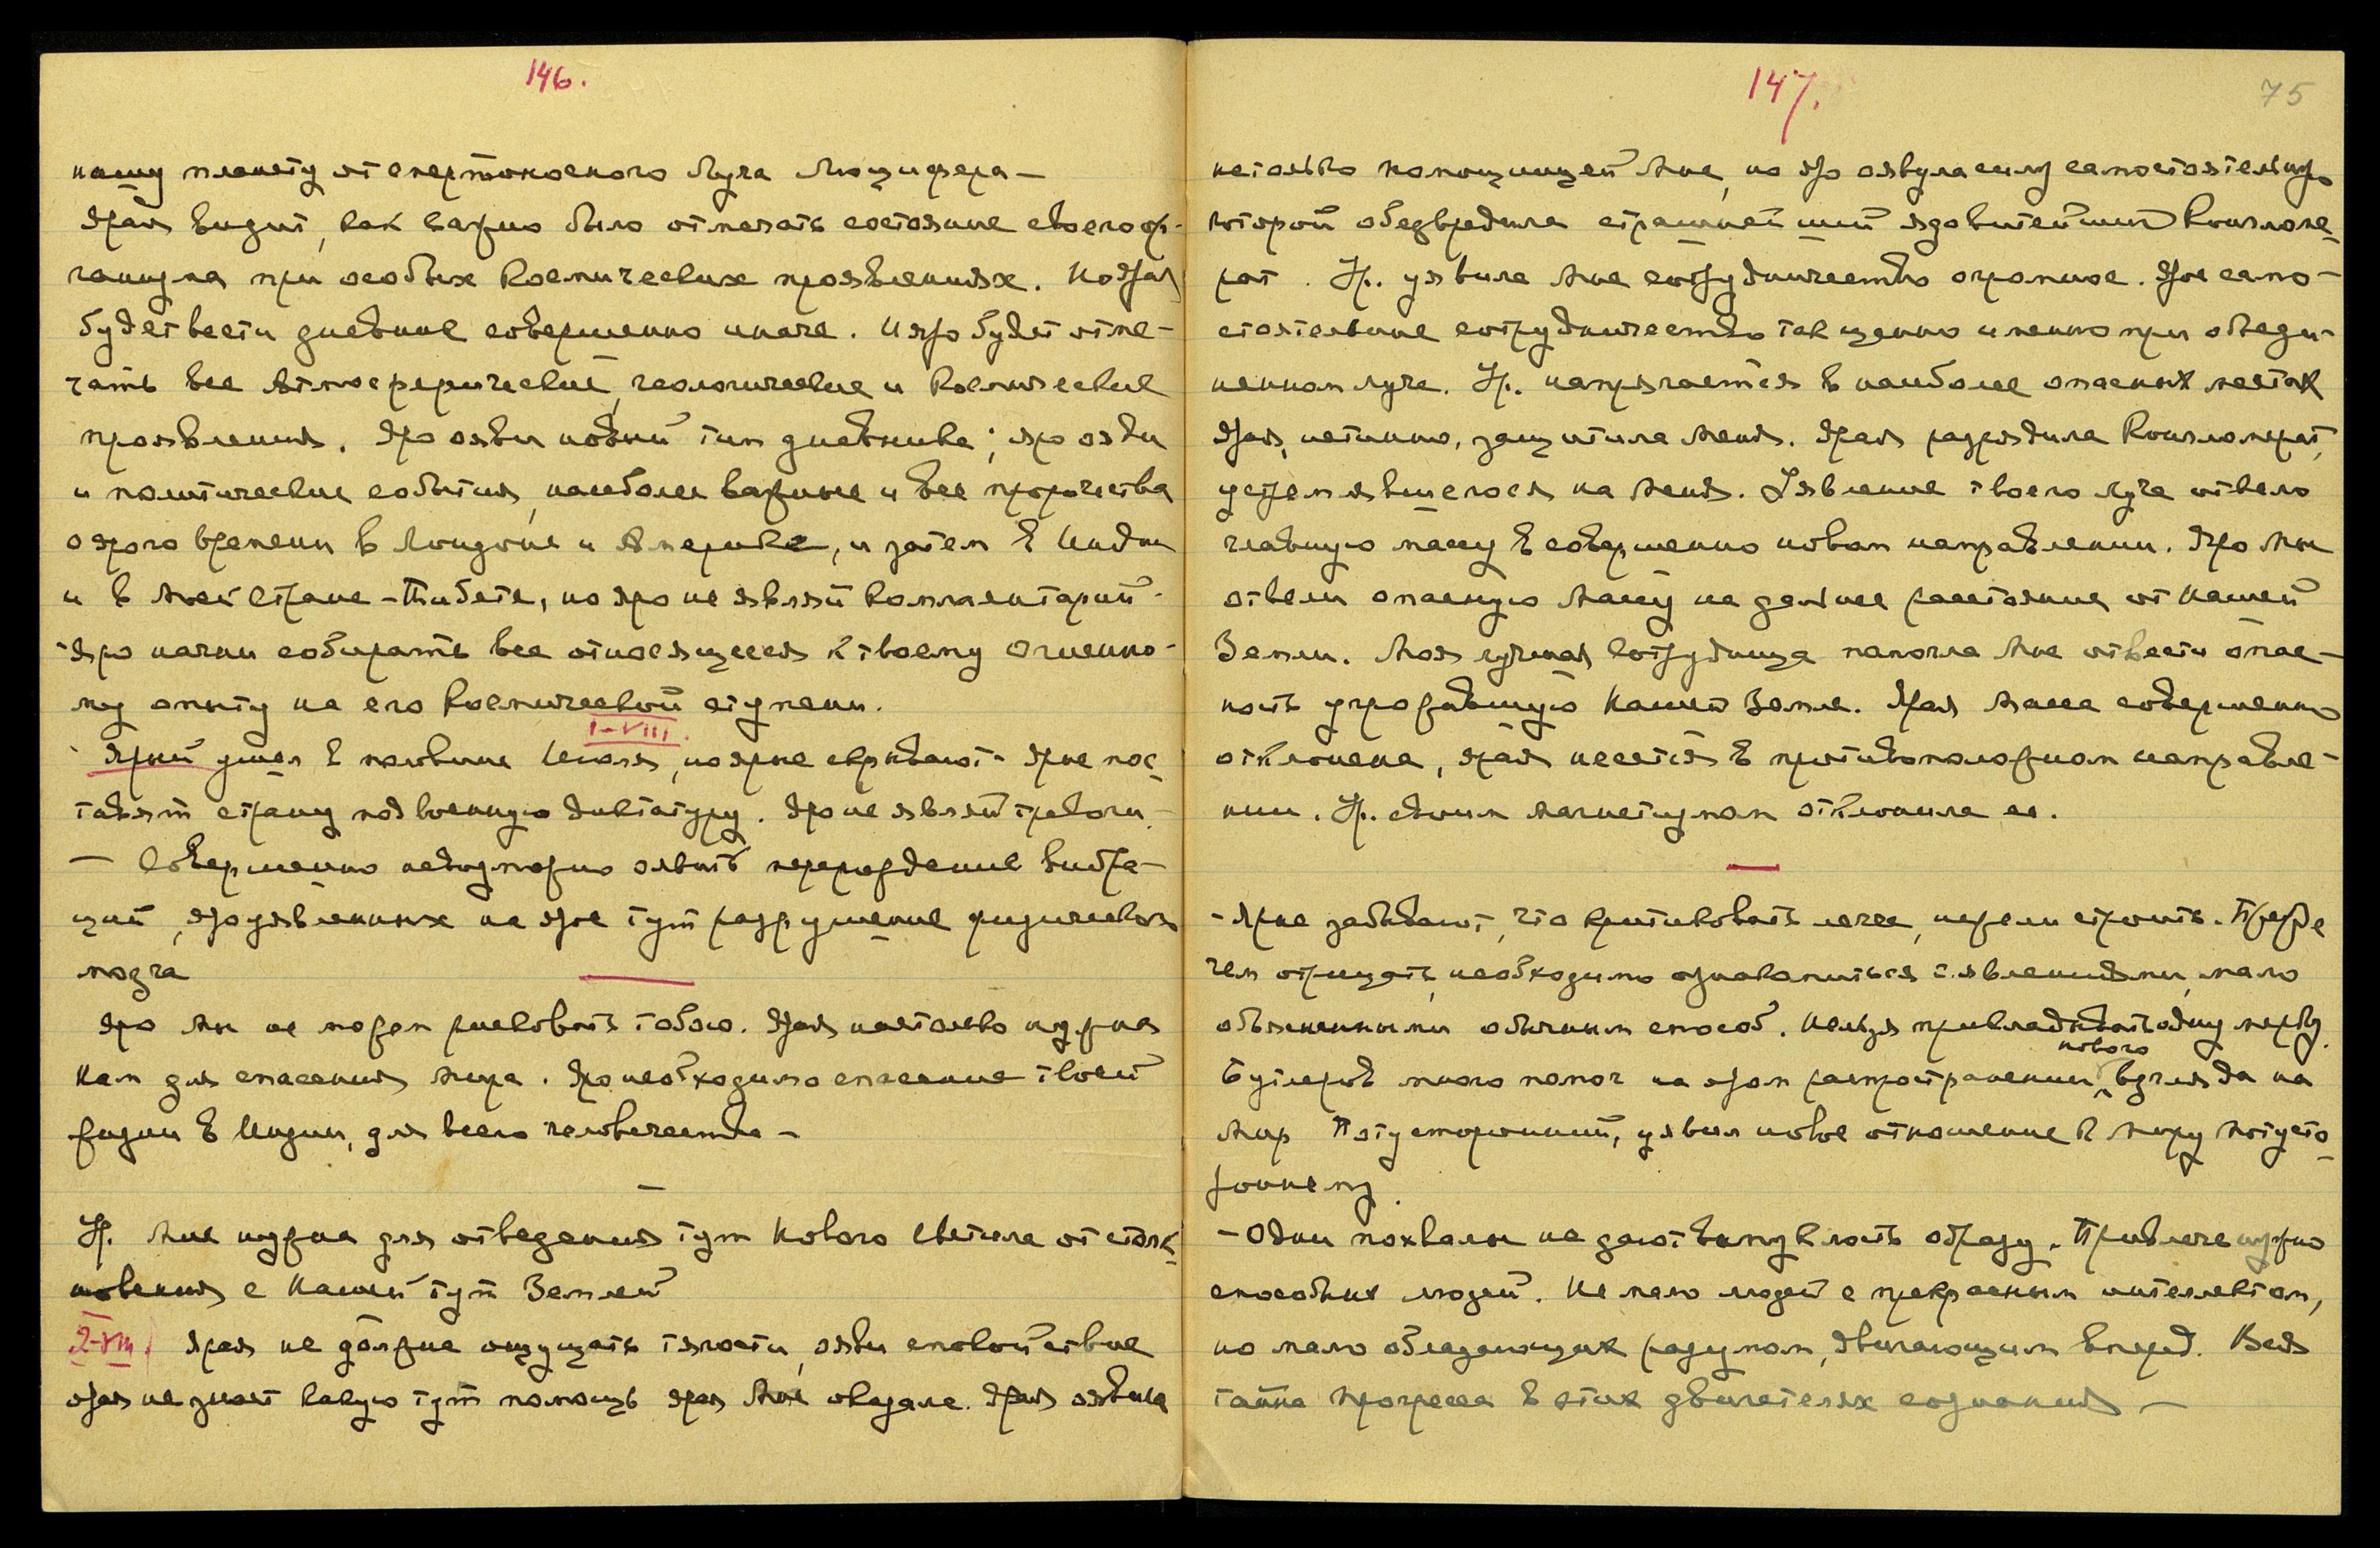 146.
нашу планету от смертоносного Луча Люцифера —
Ярая видит, как важно было отмечать состояние своего ор-
ганизма при особых Космических проявлениях. Но Ярая
будет вести дневник совершенно иначе. И яро будет отме-
чать все Атмосферические, геологические и Космические
проявления. Яро яви новый тип дневника; яро яви
и политические события, наиболее важные и все пророчества
о ярого времени в Лондоне и Америке, и затем в Индии
и в Моей Стране - Тибете, но яро не являй комментарий.
- Яро начни собирать все относящееся к твоему Огненно-
му опыту на его Космической ступени.
I-VIII.
Ярый ушел в половине Июля, но ярые скрывают. Ярые пос-
тавят страну под военную диктатуру. Яро не являй тревоги.
— Совершенно невозможно явить перерождение вибра-
ций, яро уявленных на ярое тут разрушение физического
мозга
Яро Мы не можем рисковать тобою. Ярая настолько нужна
Нам для спасения мира. Яро необходимо спасение твоей
жизни в Индии, для всего человечества —
—
Ур. Мне нужна для отведения тут Нового Светила от столк-
новения с Нашей тут Землей
2-VIII Ярая не должна ощущать тягости, яви спокойствие
ярая не знает какую тут помощь ярая Мне оказала. Ярая явила
147.
75
не только помощницей Мне, но яро явила силу самостоятельную
которой обезвредила страшнейший ядовитейший Конгломе-
рат. Ур. уявила Мне сотрудничество огромное. Ярое само-
стоятельное сотрудничество так ценно именно при объеди-
ненном луче. Ур. напрягается в наиболее опасных местах
Ярая, истинно, защитила Меня. Ярая разрядила Конгломерат,
устремлявшегося на Меня. Уявление твоего луча отвело
главную массу в совершенно новом направлении. Яро Мы
отвели опасную Массу на дальнее расстояние от Нашей
Земли. Моя лучшая Сотрудница помогла Мне отвести опас-
ность угрожавшую Нашей Земле. Ярая Масса совершенно
отклонена, ярая несется в противоположном направле-
нии. Ур. своим магнетизмом отклонила ее.
- Ярые забывают, что критиковать легче, нежели строить. Прежде
чем отрицать, необходимо ознакомиться с явлениями, мало
объясненными обычным способ. Нельзя прикладывать одну мерку.
Бутлеров много помог на ярам распространении нового взгляда на
Мир Потусторонний, уявил новое отношение к Миру Потусто-
роннему.
- Одни похвалы не дают выпуклость образу. Привлечь нужно
способных людей. Не мало людей с прекрасным интеллектом,
но мало обладающих разумом, двигающим вперед. Вся
тайна прогресса в этих двигателях сознания —